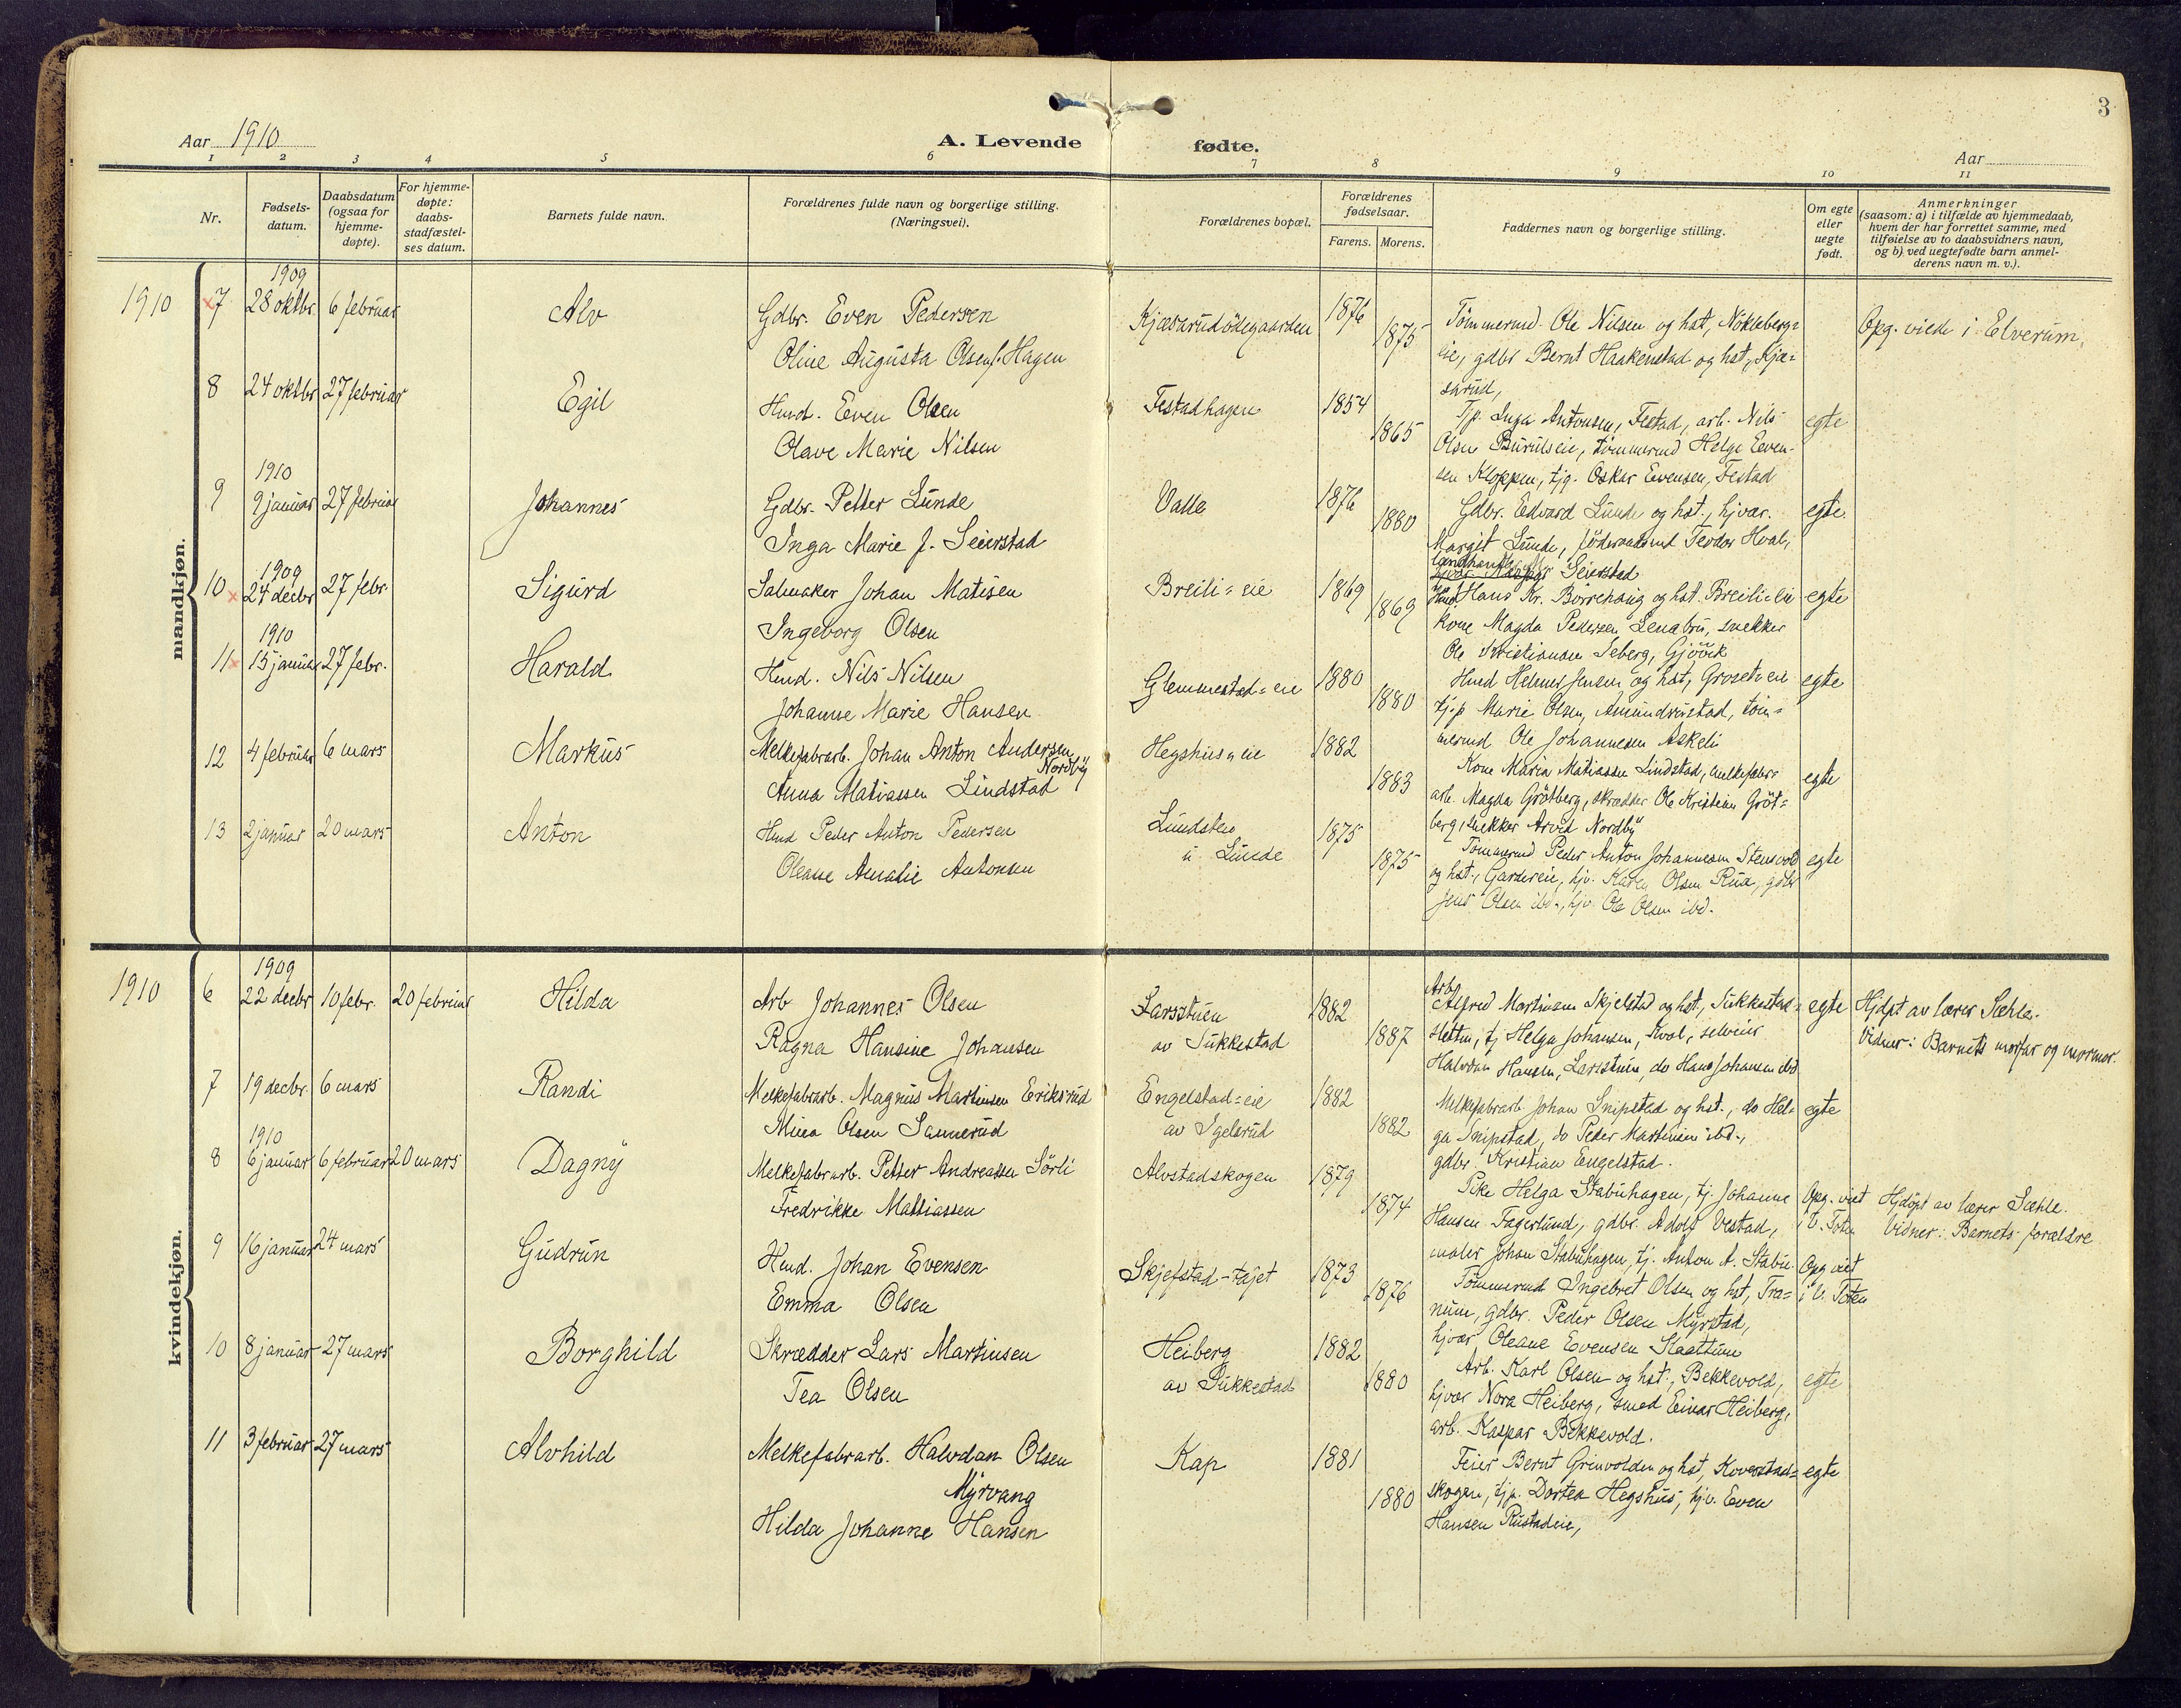 3
Aar 1910
A. Levende fødte.
Aar
1 2 3 4 5 6 7 8 9 10 11
Nr.
Fødsels-datum.
Daabsdatum (ogsaa for hjemme-døpte).
For hjemme-døpte: daabs-stadfæstel-ses datum.
Barnets fulde navn.
Forældrenes fulde navn og borgerlige stilling. (Næringsvei).
Forældrenes bopæl.
Forældrenes fødselsaar.
Farens. Morens.
Faddernes navn og borgerlige stilling.
Om egte eller uegte født.
Anmerkninger (saasom: a) i tilfælde av hjemmedaab, hvem der har forrettet samme, med tilføielse av to daabsvidners navn, og b) ved uegtefødte barn anmel-derens navn m. v.).
mandkjøn.
1910
1909
7 28 oktbr. 6 februar Alv
Gdbr. Even Pedersen
Oline Augusta Olsen f. Hagen
Kjæsarudødegaarden 1876 1875
Tømmermd. Ole Nilsen og hst, Nøkleberg=
eie, gdbr Bernt Haakenstad og hst, Kjæ=
sarud,
Opg. viede i Elverum.
8 24 oktbr 27 februar Egil
Husd. Even Olsen
Olave Marie Nilsen
Festadhagen 1854 1865
Tjp. Inga Antonsen, Festad, arb. Nils
Olsen Burulseie, tømmermd Helge Even-
sen Kloppen, tjg. Oskar Evensen, Festad
egte
1910
9 9 januar 27 februar Johannes
Gdbr. Petter Lunde
Inga Marie f. Seierstad
Valle 1876 1880
Gdbr. Edvard Lunde og hst., hjvær.
Margit Lunde, føderaadsmd Teodor Hval,
landhandl. Seierstad
egte
1909
10 24 decbr 27 febr. Sigurd
Salmaker Johan Matisen
Ingeborg Olsen
Breili=eie 1869 1869
Husd. Hans Kr. Borrehaug og hst. Breili=eie
kone Magda Pedersen Lenabru, snekker
Ole Kristiansen Seberg, Gjøvik
egte
1910
11 15 januar 27 febr. Harald
Husd. Nils Nilsen
Johanne Marie Hansen
Glemmestad=eie 1880 1880
Husd Helmer Jensen og hst, Groset=eie
tj.p Marie Olsen, Amundrustad, tøm=
mermd Ole Johannesen Askeli
egte
12 4 februar 6 mars Markus
Melkefabrarb. Johan Anton Andersen
Nordby
Anna Matiassen Lindstad
Hegshus=eie 1882 1883
Kone Maria Matiassen Lindstad, melkefabr=
arb. Magda Grøtberg, skrædder Ole Kristian Grøt=
berg, snekker Arvid Nordby
egte
13 2 januar 20 mars Anton
Husd Peder Anton Pedersen
Oleane Amalie Antonsen
Lundsten
u Lunde 1875 1875
Tømmermd Peder Anton Johannesen Stensvold
og hst., Gardereie, hjv. Karen Olsen Rua, gdbr
Jens Olsen ibd., hjv. Ole Olsen ibd.
egte
kvindekjøn.
1910
1909
6 22 decbr 10 febr. 20 februar Hilda
Arb Johannes Olsen
Ragna Hansine Johansen
Larsstuen
av Sukkestad 1882 1887
Arb.
Alfred Martinsen Skjelstad og hst., Sukkestad=
Hetten, tj Helga Johansen, Kval, selveier
Halvdan Hansen, Larsstuen, do Hans Johansen ibd
egte
Hjdpt av lærer Sæhle.
Vidner: Barnets morfar og mormor.
7 19 decbr. 6 mars Randi
Melkefabrarb. Magnus Martinsen Eriksrud
Mina Olsen Sannerud
Engelstad=eie
av Igelsrud 1882 1882
Melkefabrarb Johan Snipstad og hst., do Hel-
ga Snipstad, do Peder Martinsen ibd.,
gdbr. Kristian Engelstad.
egte
1910
8 6 januar 6 februar 20 mars Dagny
Melkefabrarb. Petter Andreassen Sørli
Fredrikke Mattiassen
Alvstadskogen 1879 1874
Pike Helga Stabuhagen, tj. Johanne
Hansen Fagerlund, gdbr. Adolf Vestad,
maler Johan Stabuhagen, tj. Anton A. Stabu.
Opg. viet
i V. Toten
Hjdøpt av lærer Sæhle.
Vidner: Barnets forældre
9 16 januar 24 mars Gudrun
Husd. Johan Evensen
Emma Olsen
Skjefstad-tajet 1873 1876
Tømmermd Ingebret Olsen og hst, Tra=
num, gdbr. Peder Olsen Myrstad,
hjvær Oleane Evensen Skattum
Opg viet
i V. Toten
10 8 januar 27 mars Borghild
Skrædder Lars Martinsen
Tea Olsen
Heiberg
av Sukkestad 1882 1880
Arb. Karl Olsen og hst., Bekkevold,
hjvær Nora Heiberg, smed Einar Heiberg,
arb. Kaspar Bekkevold.
egte
11 3 februar 27 mars Alvhild
Melkefabrarb. Halvdan Olsen
Myrvang
Hilda Johanne Hansen
Kap 1881 1880
Feier Bernt Grønvolden og hst, Koverstad=
skogen, tjp. Dortea Hegshus, hjv. Even
Hansen Rustadeie,
egte